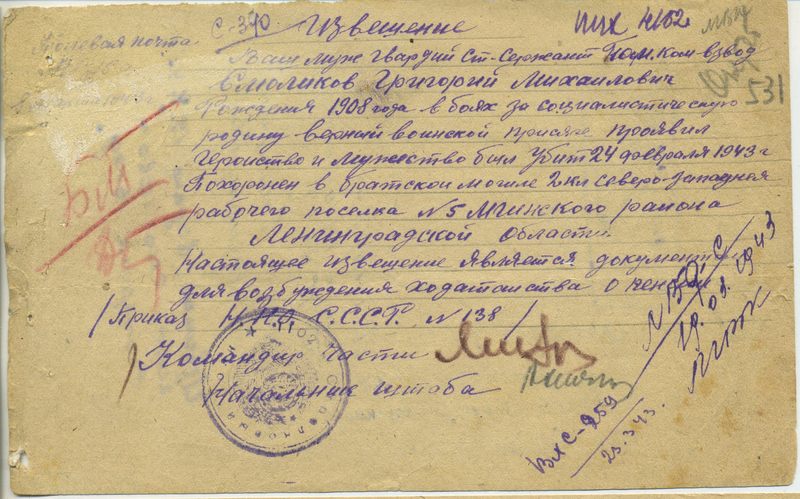 С-390 Извещение
Полевая почта
Ваш муж гвардий Ст-Сержант Пом. Ком-взвод
Смоликов Григорий Михаилович
Рождения 1908 года в боях за социалистическую
родину верний воинской присяге проявил
Геройство и мужество был убит 24 февраля 1943 г
Похоронен в братской могиле 2 кл северо-западная
рабочего поселка №5 Мгинского района
Ленинградской области
Настоящее извещение является документ
для возбуждения ходатайства о пенсии
/Приказ Н.К.О. С.С.С.Р. №138/
Командир части
Начальник штаба
531
19.03.1943
Вх С-259
23.3.43.